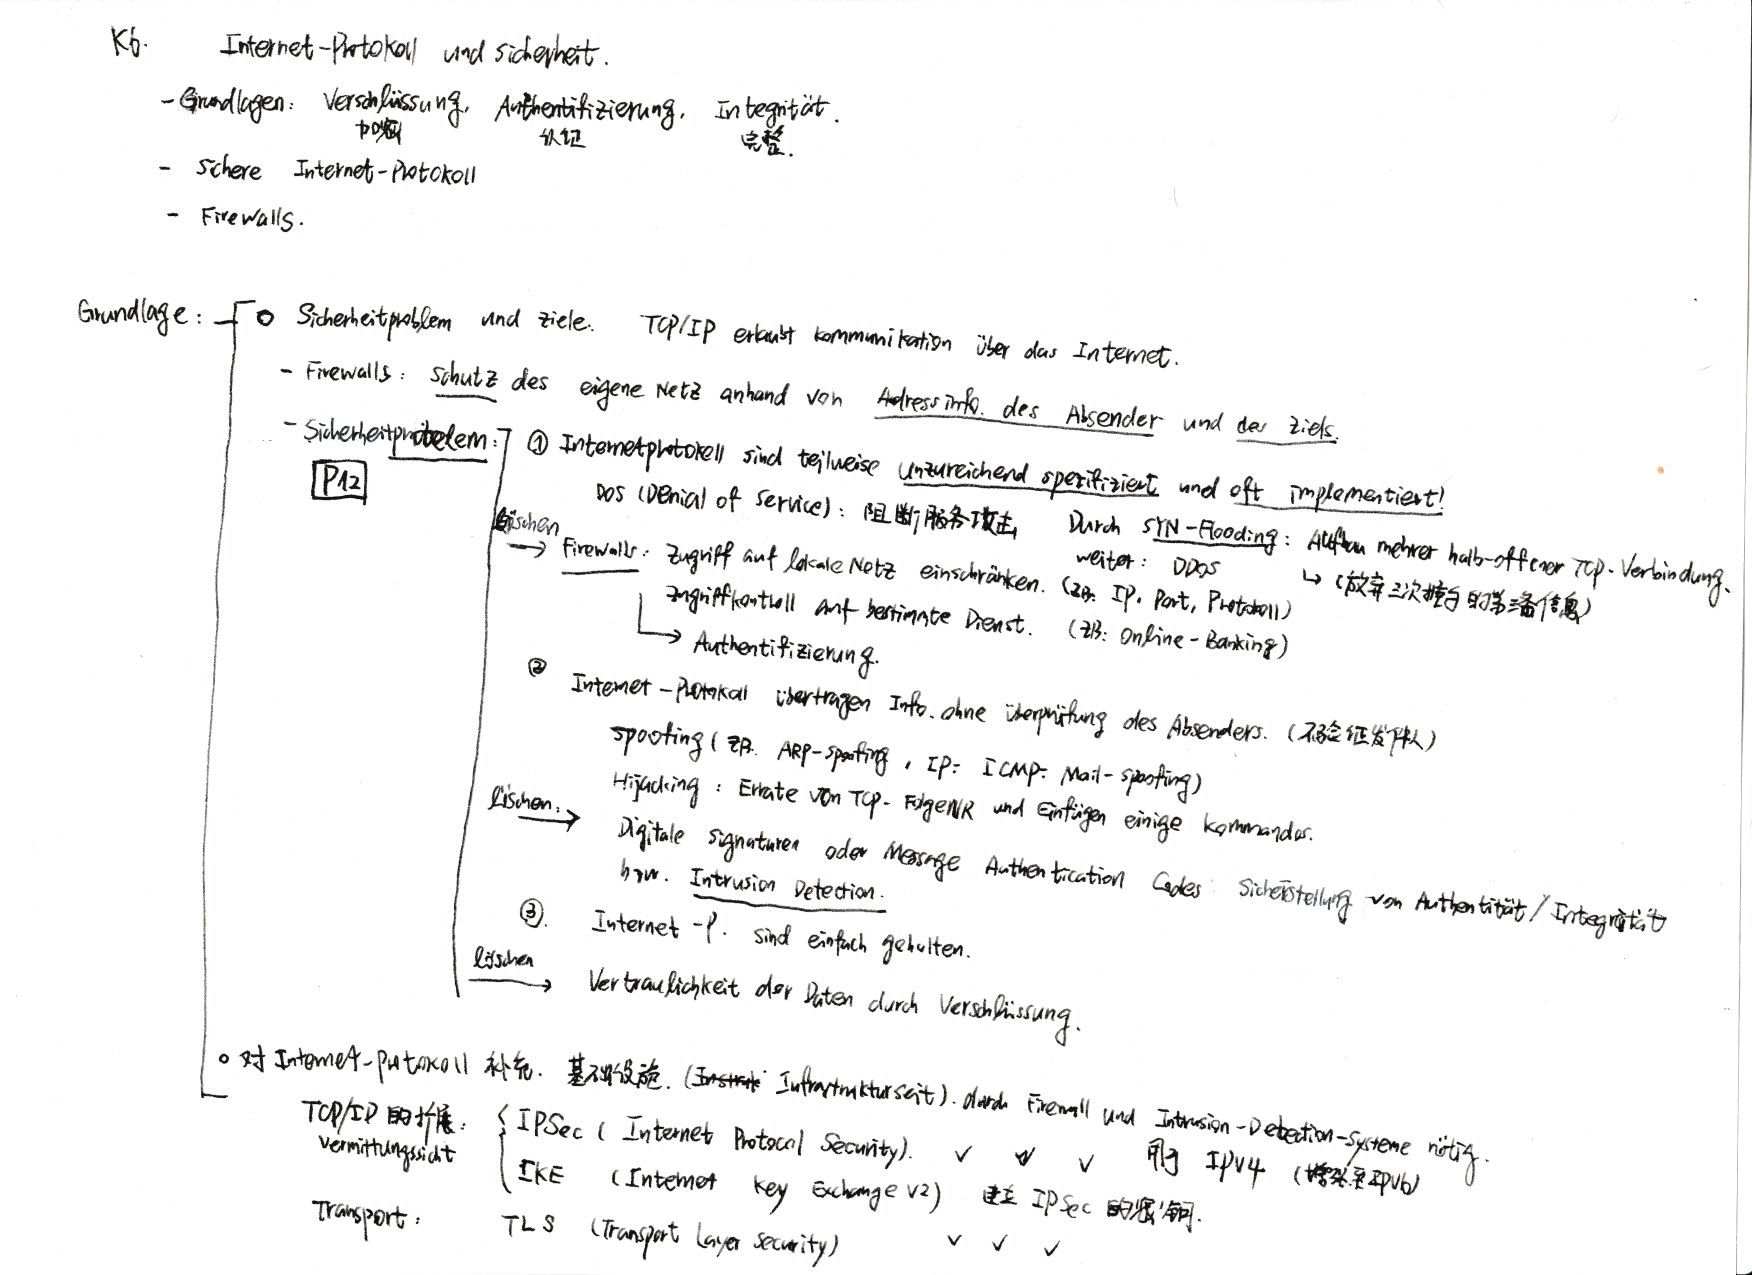 K6. Internet-Protokoll und Sicherheit.
- Grundlagen: Verschlüssung, Authentifizierung, Integrität.
加密 认证 完整.
- Sichere Internet-Protokoll
- Firewalls.
Grundlage: o Sicherheitproblem und Ziele. TCP/IP erlaubt Kommunikation über das Internet.
- Firewalls: Schutz des eigene Netz anhand von Adressinfo. des Absender und des Ziels.
- Sicherheitproblem: ① Internetprotokoll sind teilweise unzureichend spezifiziert und oft implementiert!
P12
DOS (Denial of Service): 阻断服务攻击 Durch SYN-Flooding: Aufbau mehrer halb-offener TCP-Verbindung.
weiter: DDOS ↳ (放弃三次握手的第三备信息)
löschen → Firewalls: Zugriff auf lokale Netz einschränken. (ZB: IP, Port, Protokoll)
Zugriffkontroll auf bestimmte Dienst. (ZB: Online-Banking)
→ Authentifizierung.
② Internet-Protokoll übertragen Info. ohne überprüfung des Absenders. (不验证发件人)
Spoofing (ZB. ARP-spoofing, IP- ICMP- Mail-spoofing)
Hijacking: Errate von TCP-FolgeNR und Einfügen einige Kommandos.
löschen: → Digitale Signaturen oder Message Authentication Codes: Sicherstellung von Authentität/Integrität
bzw. Intrusion Detection.
③. Internet-P. sind einfach gehalten.
löschen → Vertraulichkeit der Daten durch Verschlüssung.
o 对 Internet-Protokoll 补充. 基础设施. (Infrastrukturseit). durch Firewall und Intrusion-Detection-Systeme nötig.
TCP/IP 的扩展: { IPSec (Internet Protocol Security). ✓ ✓ ✓ 用于 IPV4 (IPV6)
Vermittungssicht IKE (Internet Key Exchange V2) 建立 IPSec 的密钥.
Transport: TLS (Transport Layer Security) ✓ ✓ ✓